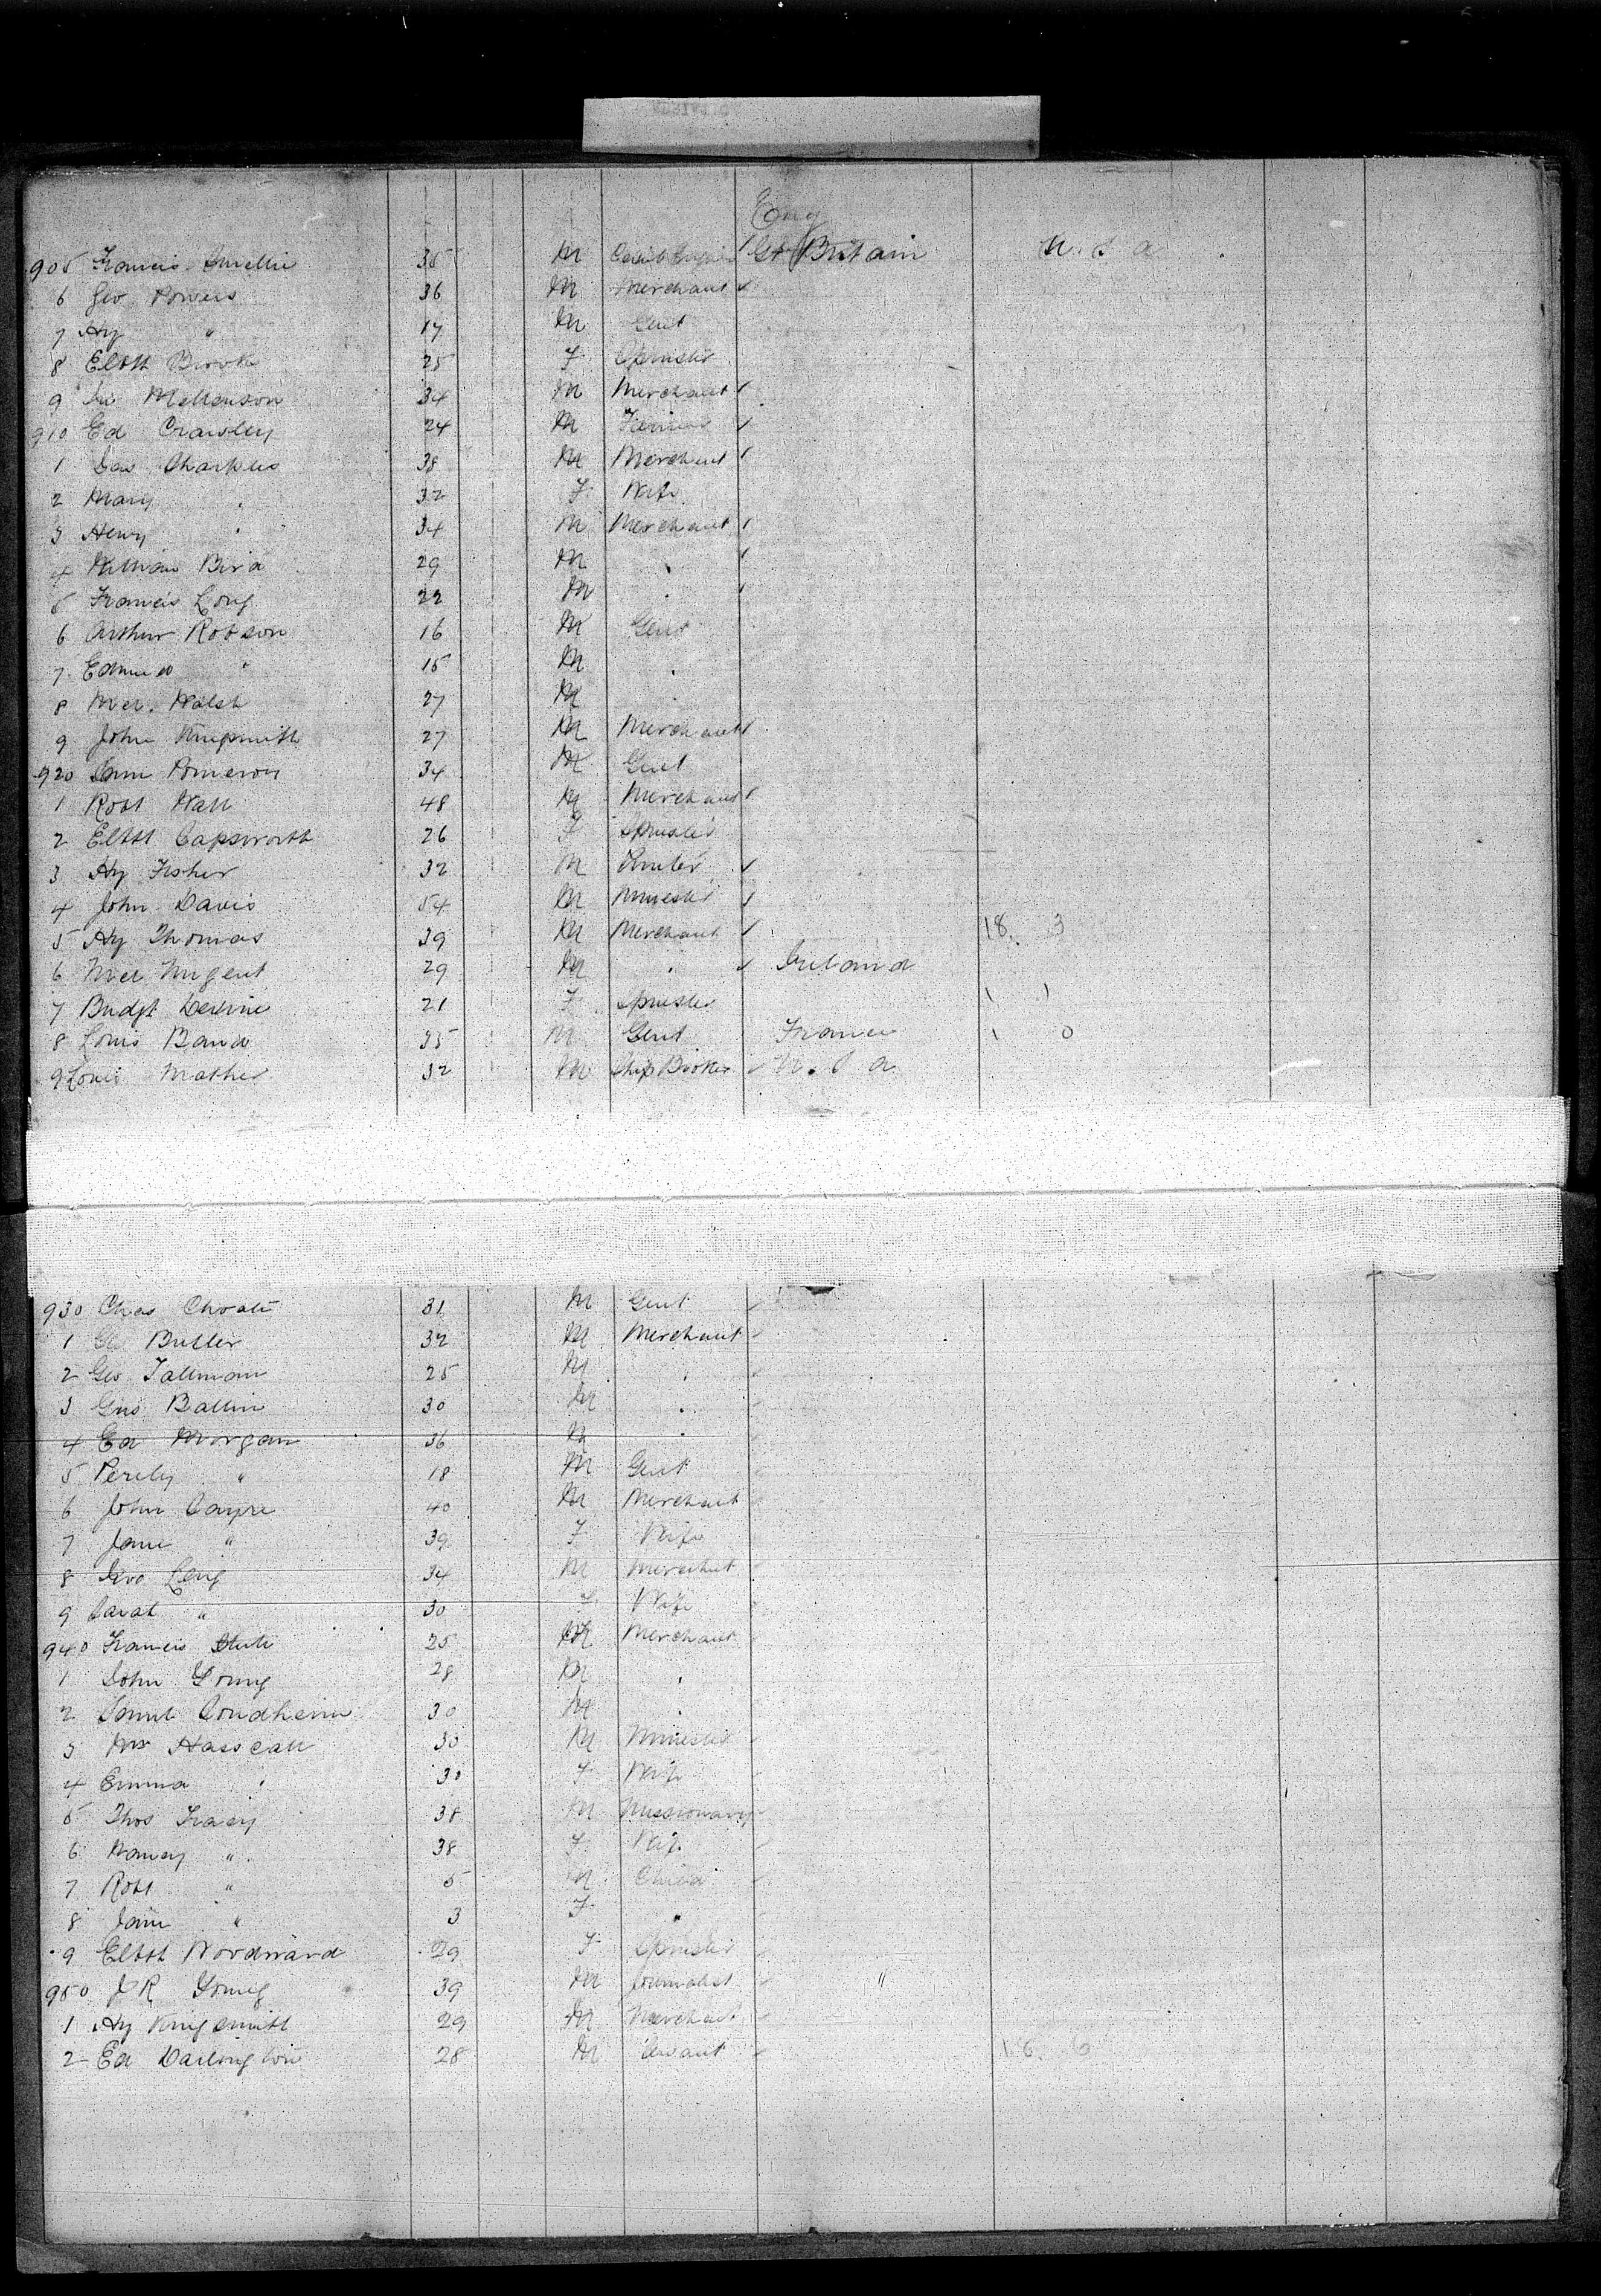 Eng
905 Francis Smellie 35 M Civil Engin Gt Britain U. S. A
6 Geo Powers 36 M Merchant
7 Hy " 17 M Gent
8 Elbth Brook 25 F Spinster
9 M 34 M Merchant
910 Ed Crawsley 24 M Farmer
1 Charples 38 M Merchant
2 Mary " 32 F Wife
3 Henry " 34 M Merchant
4 William Bird 29 M "
5 Francis Long 22 M "
6 Arthur Robson 16 M Gent
7 Edmund " 15 M "
8 Mcl. Walsh 27 M "
9 John Kingsmith 27 M Merchant
920 Pomeroy 34 M Gent
1 Robt Wall 48 M Merchant
2 Elbth Capsworth 26 F Spinster
3 Hy Fisher 32 M
4 John Davis 54 M Minester
5 Hy Thomas 39 M Merchant 18. 3
6 Mcl Nugent 29 M " Ireland
7 Bridgt Devine 21 F Spinster 1 1
8 Louis Band 35 M Gent France 1 0
9 Louis Mather 32 M Ship Broker U. S. A
930 Chas Choate 31 M Gent
1 Butler 32 M Merchant
2 Geo Tallman 25 M "
3 Gus Ballin 30 M "
4 Ed Morgan 36 M "
5 Perely " 18 M Gent
6 John Sayre 40 M Merchant
7 Jane " 39 F Wife
8 Leng 34 M Merchant
9 Sarah " 30 F Wife
940 Francis 25 M Merchant
1 John Young 28 M "
2 Saml Sondheim 30 M "
3 Wm Hasscall 30 M Minester
4 Emma " 30 F Wife
5 Thos Tracy 38 M Missionary
6 Nancy " 38 F Wife
7 Robt " 5 M Child
8 Jane " 3 F "
9 Elbth Woodward 29 F Spinster
950 J R Young 39 M Journalist "
1 Hy Kingsmith 29 M Merchant
2 Ed Darlington 28 M Servant 16. 6